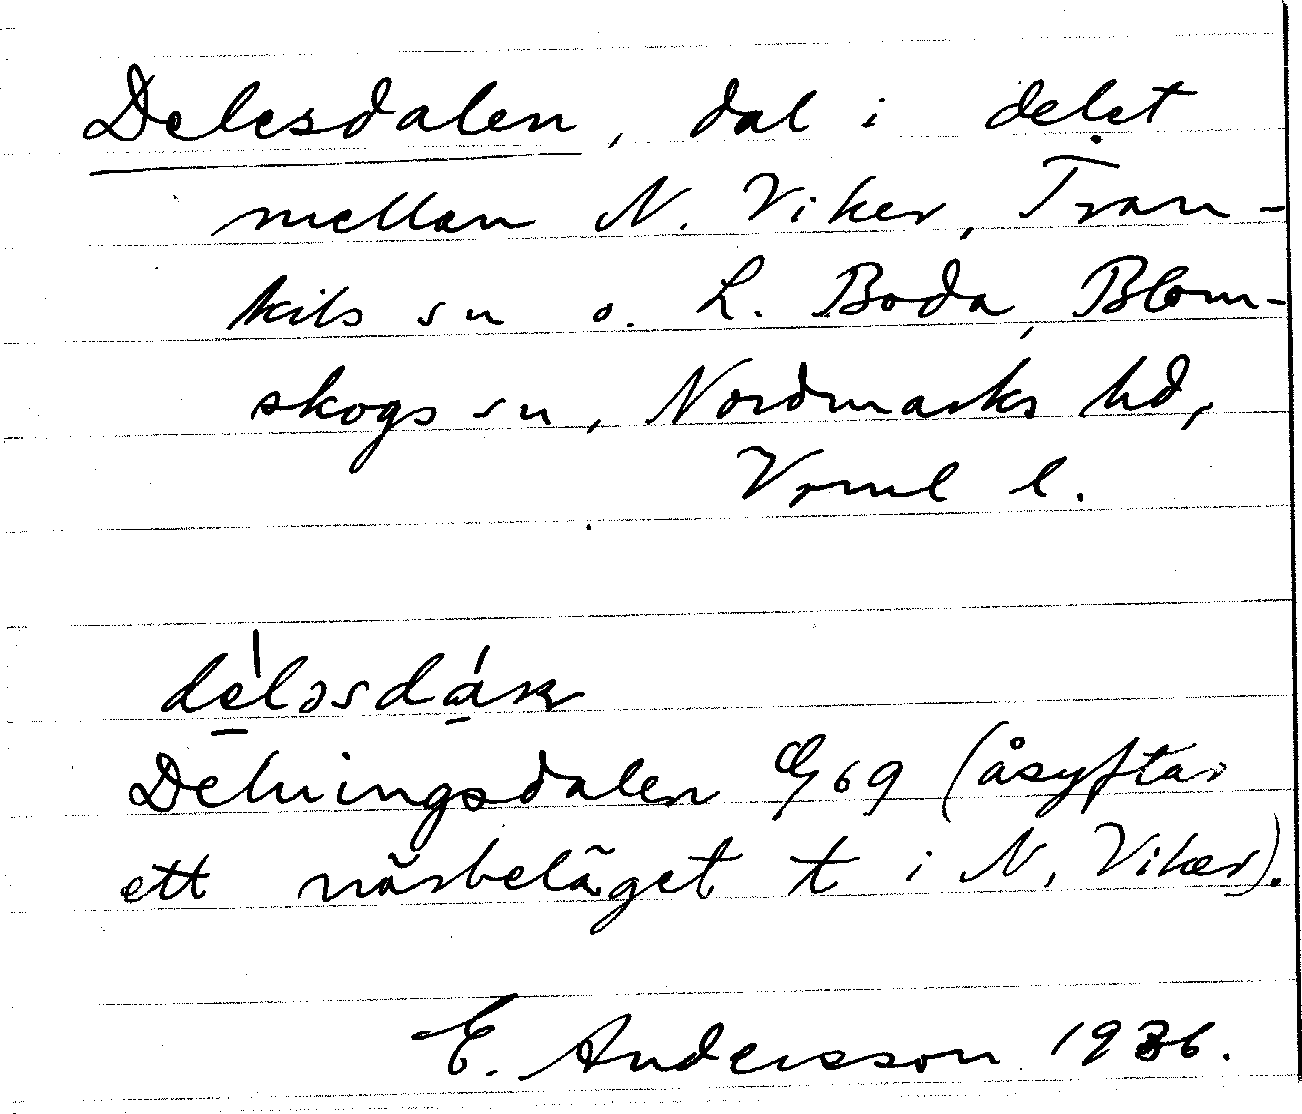 Delesdalen, dal i delet
mellan N. Viker, Tran-
kils sn o. L. Boda, Blom-
skogs sn, Nordmarks hd,
Vrml l.
Delningsdalen 69 (åsyftar
ett närbeläget t i N. Viker).
E. Andersson 1936.